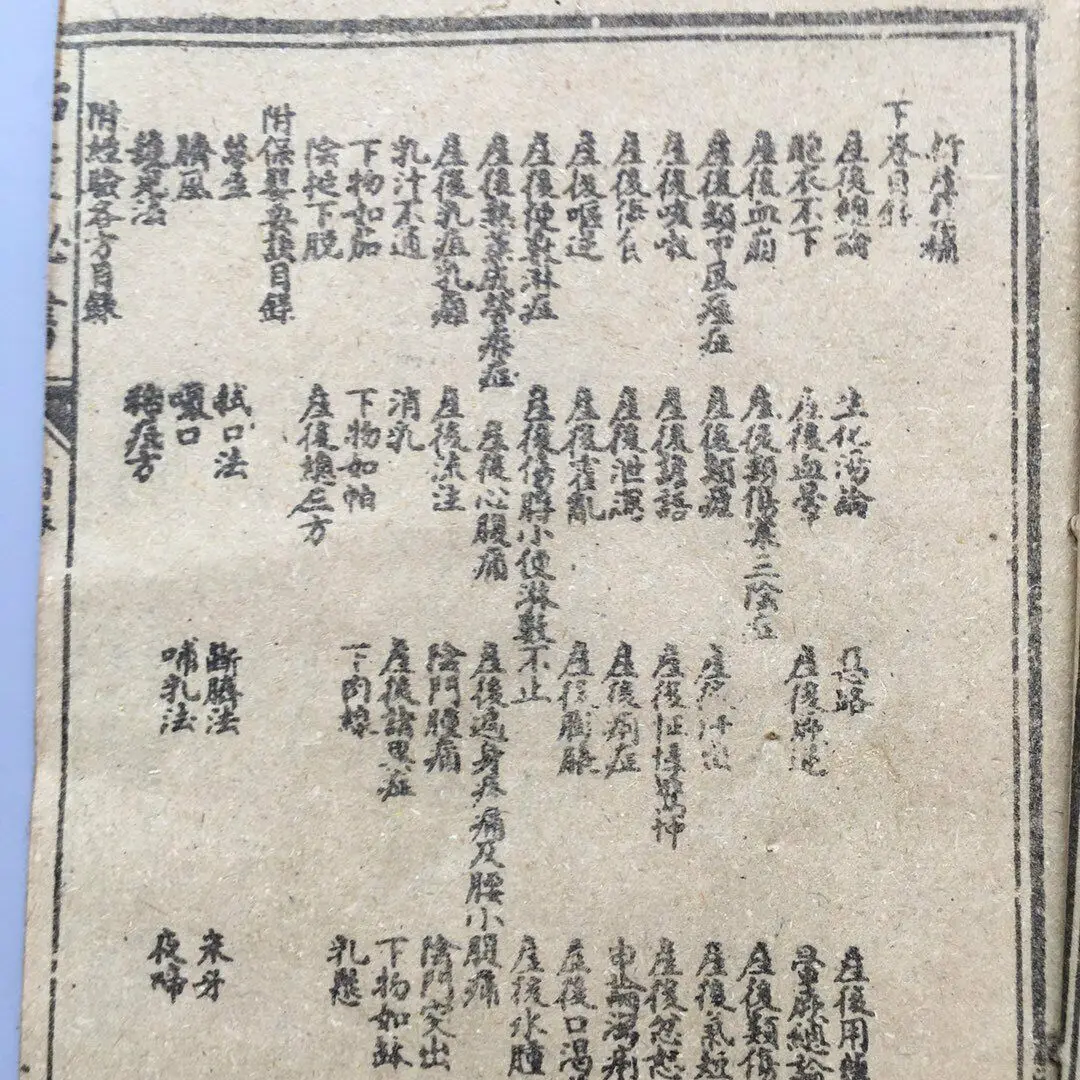 下卷目錄
產後總論 生化湯論 惡路 產後用
胞衣不下 產後血暈 產後 暈厥總論
產後血崩 產後類傷寒三陰症 產後類傷
產後類中風痙症 產後類瘧 產後汗出 產後氣短
產後咳嗽 產後譫語 產後怔忡驚悸 產後忽
產後傷食 產後泄瀉 產後痢症 申論瀉痢
產後嘔逆 產後霍亂 產後膨脹 產後口渴
產後便數淋症 產後傷脬小便淋數不止 產後水腫
產後熱薰成勞瘵症 產後心腹痛 產後遍身疼痛及腰小腹痛
產後乳疽乳癰 產後流注 陰門腫痛 陰門突出
乳汁不通 消乳 產後諸黑症 下物如缽
下物如茄 下物如帕 下肉線 乳懸
陰挺下脫 產後 方
附保嬰要訣目錄
拭口法 斷臍法 來牙
臍風 噤口 哺乳法 夜啼
護兒法 稀痘方
附經驗各方目錄